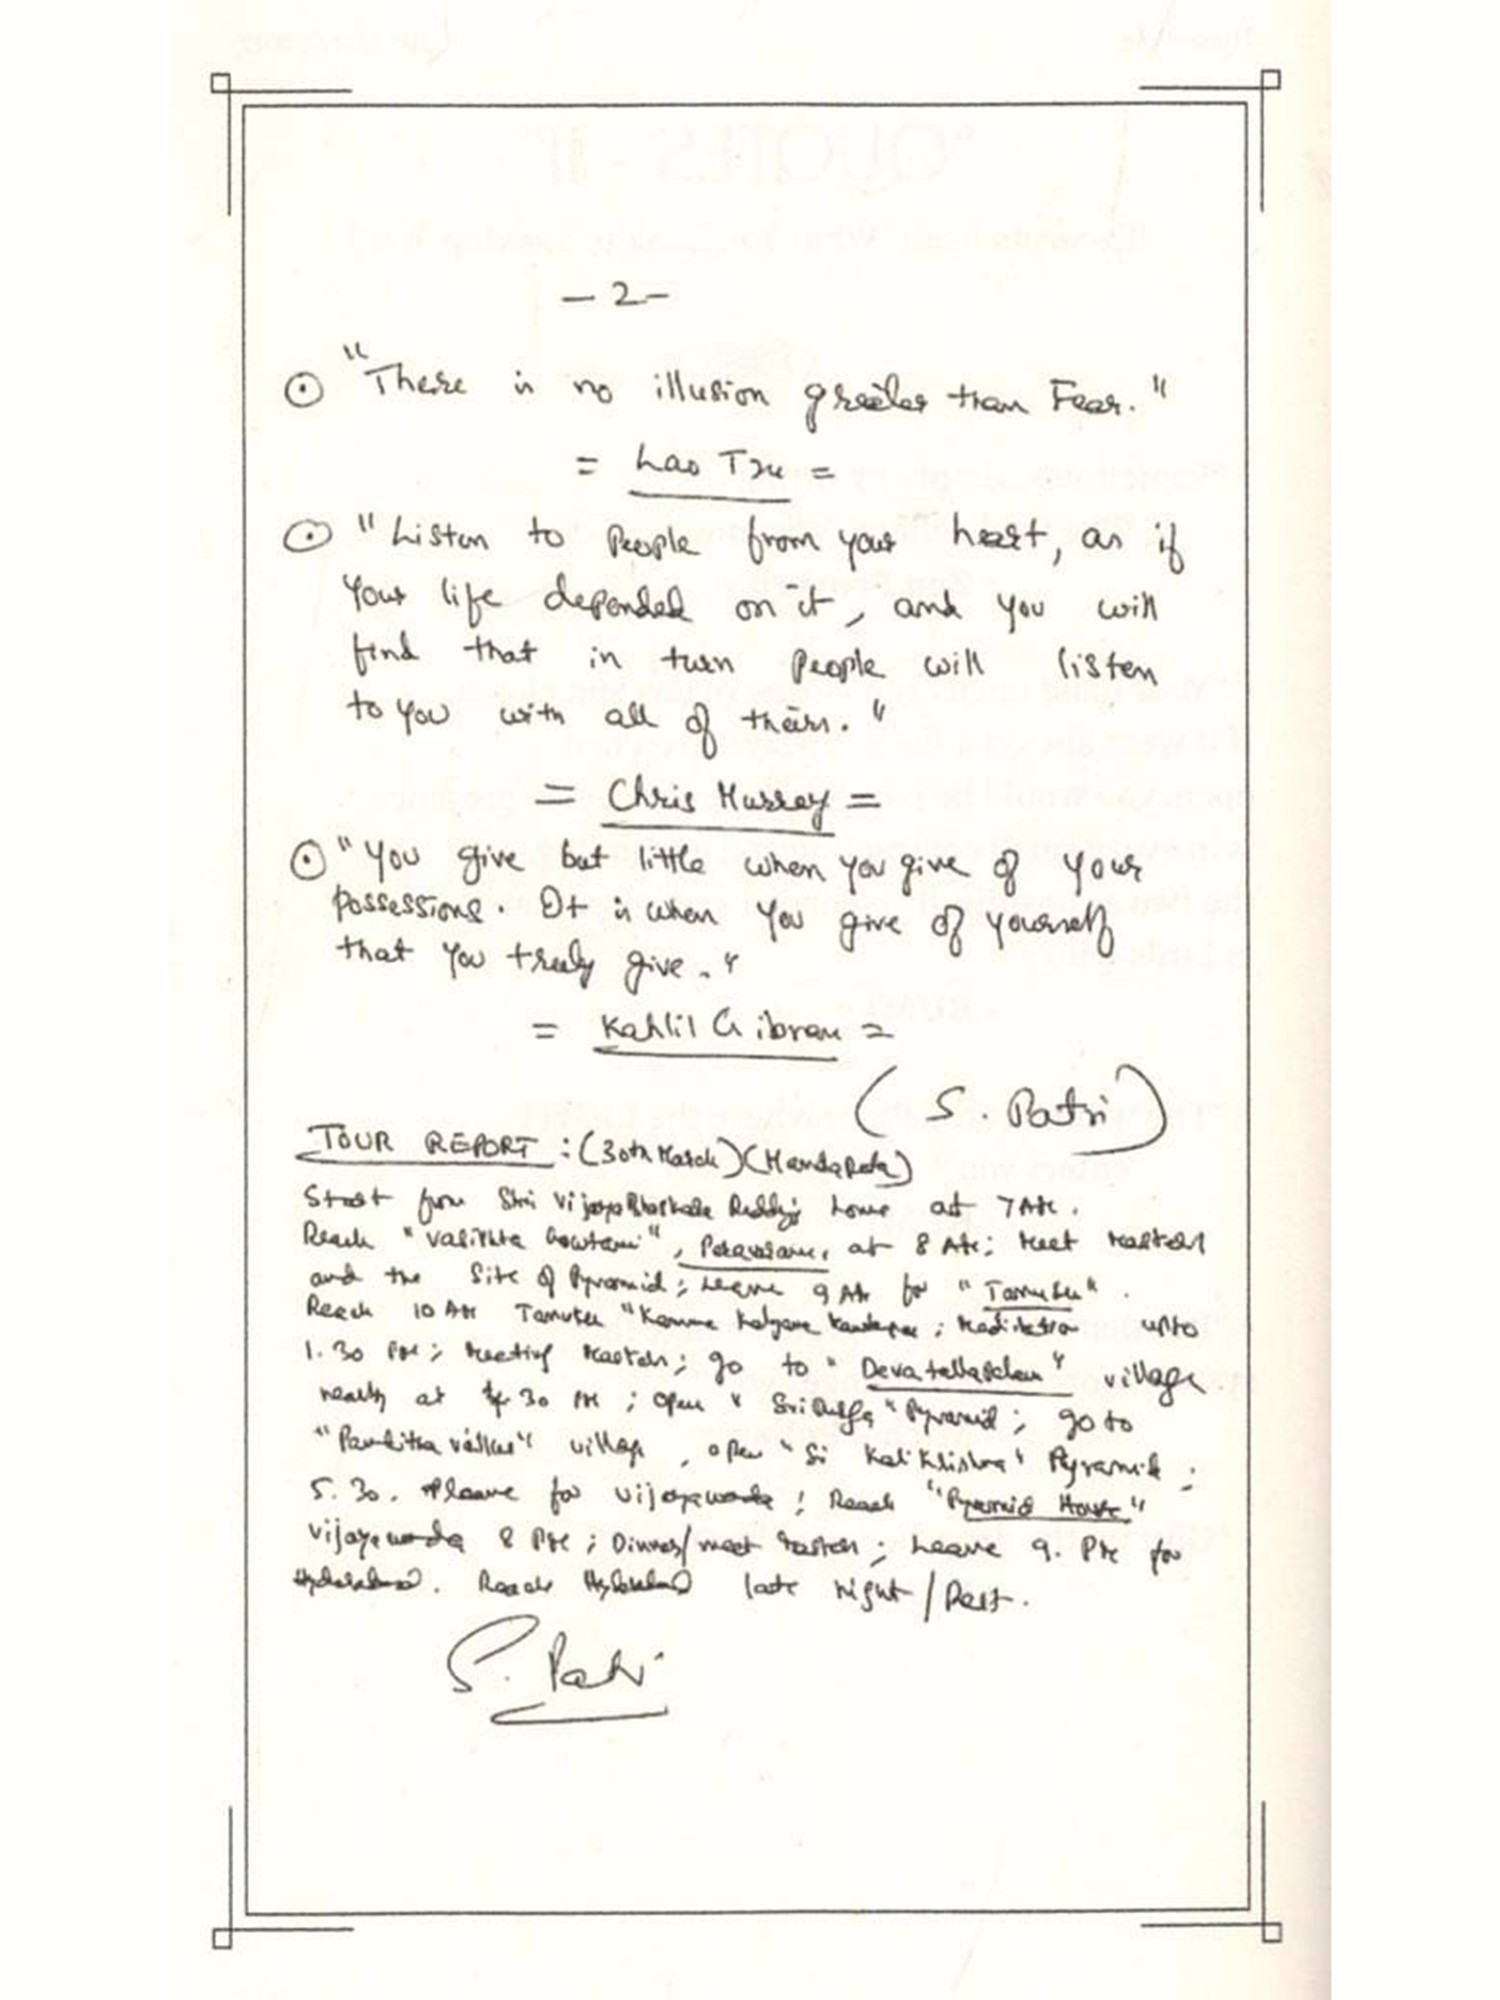 — 2 —
⊙ "There is no illusion greater than Fear."
= Lao Tzu =
⊙ "Listen to People from your heart, as if
your life depended on it, and you will
find that in turn People will listen
to you with all of theirs."
= Chris Murray =
⊙ "You give but little when you give of your
possessions. It is when you give of yourself
that you truly give."
= Kahlil Gibran =
(S. Patri)
TOUR REPORT : (30th March) (Mandapeta)
Start from Shri Vijaya Bhaskara Reddy's home at 7 AM.
Reach "Vasishta Gowtami", at 8 AM; Meet Masters
and the Site of Pyramid; Leave 9 AM for "Tanuku".
Reach 10 AM Tanuku "Kamma Kalyana Mandapam; Meditation upto
1.30 PM; Meeting Masters; go to village
nearby at 4.30 PM; open "Sri Durga" Pyramid; go to
village, open "Sri Kali Krishna" Pyramid;
5.30. leave for Vijayawada; Reach "Pyramid House"
Vijayawada 8 PM; Dinner/meet Masters; Leave 9. PM for
Hyderabad. Reach Hyderabad late night/Rest.
S. Patri